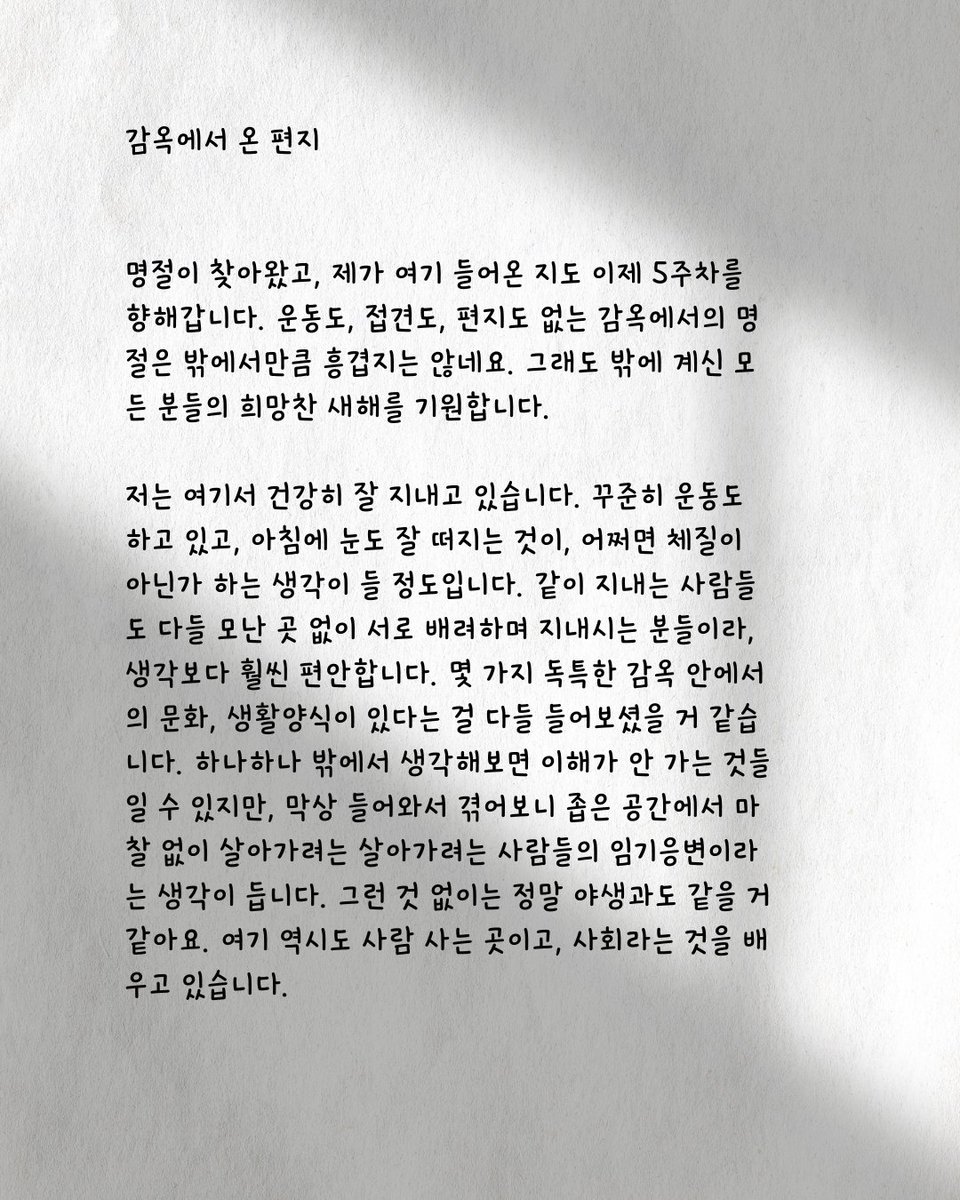 감옥에서 온 편지
명절이 찾아왔고, 제가 여기 들어온 지도 이제 5주차를
향해갑니다. 운동도, 접견도, 편지도 없는 감옥에서의 명
절은 밖에서만큼 흥겹지는 않네요. 그래도 밖에 계신 모
든 분들의 희망찬 새해를 기원합니다.
저는 여기서 건강히 잘 지내고 있습니다. 꾸준히 운동도
하고 있고, 아침에 눈도 잘 떠지는 것이, 어쩌면 체질이
아닌가 하는 생각이 들 정도입니다. 같이 지내는 사람들
도 다들 모난 곳 없이 서로 배려하며 지내시는 분들이라,
생각보다 훨씬 편안합니다. 몇 가지 독특한 감옥 안에서
의 문화, 생활양식이 있다는 걸 다들 들어보셨을 거 같습
니다. 하나하나 밖에서 생각해보면 이해가 안 가는 것들
일 수 있지만, 막상 들어와서 겪어보니 좁은 공간에서 마
찰 없이 살아가려는 살아가려는 사람들의 임기응변이라
는 생각이 듭니다. 그런 것 없이는 정말 야생과도 같을 거
같아요. 여기 역시도 사람 사는 곳이고, 사회라는 것을 배
우고 있습니다.